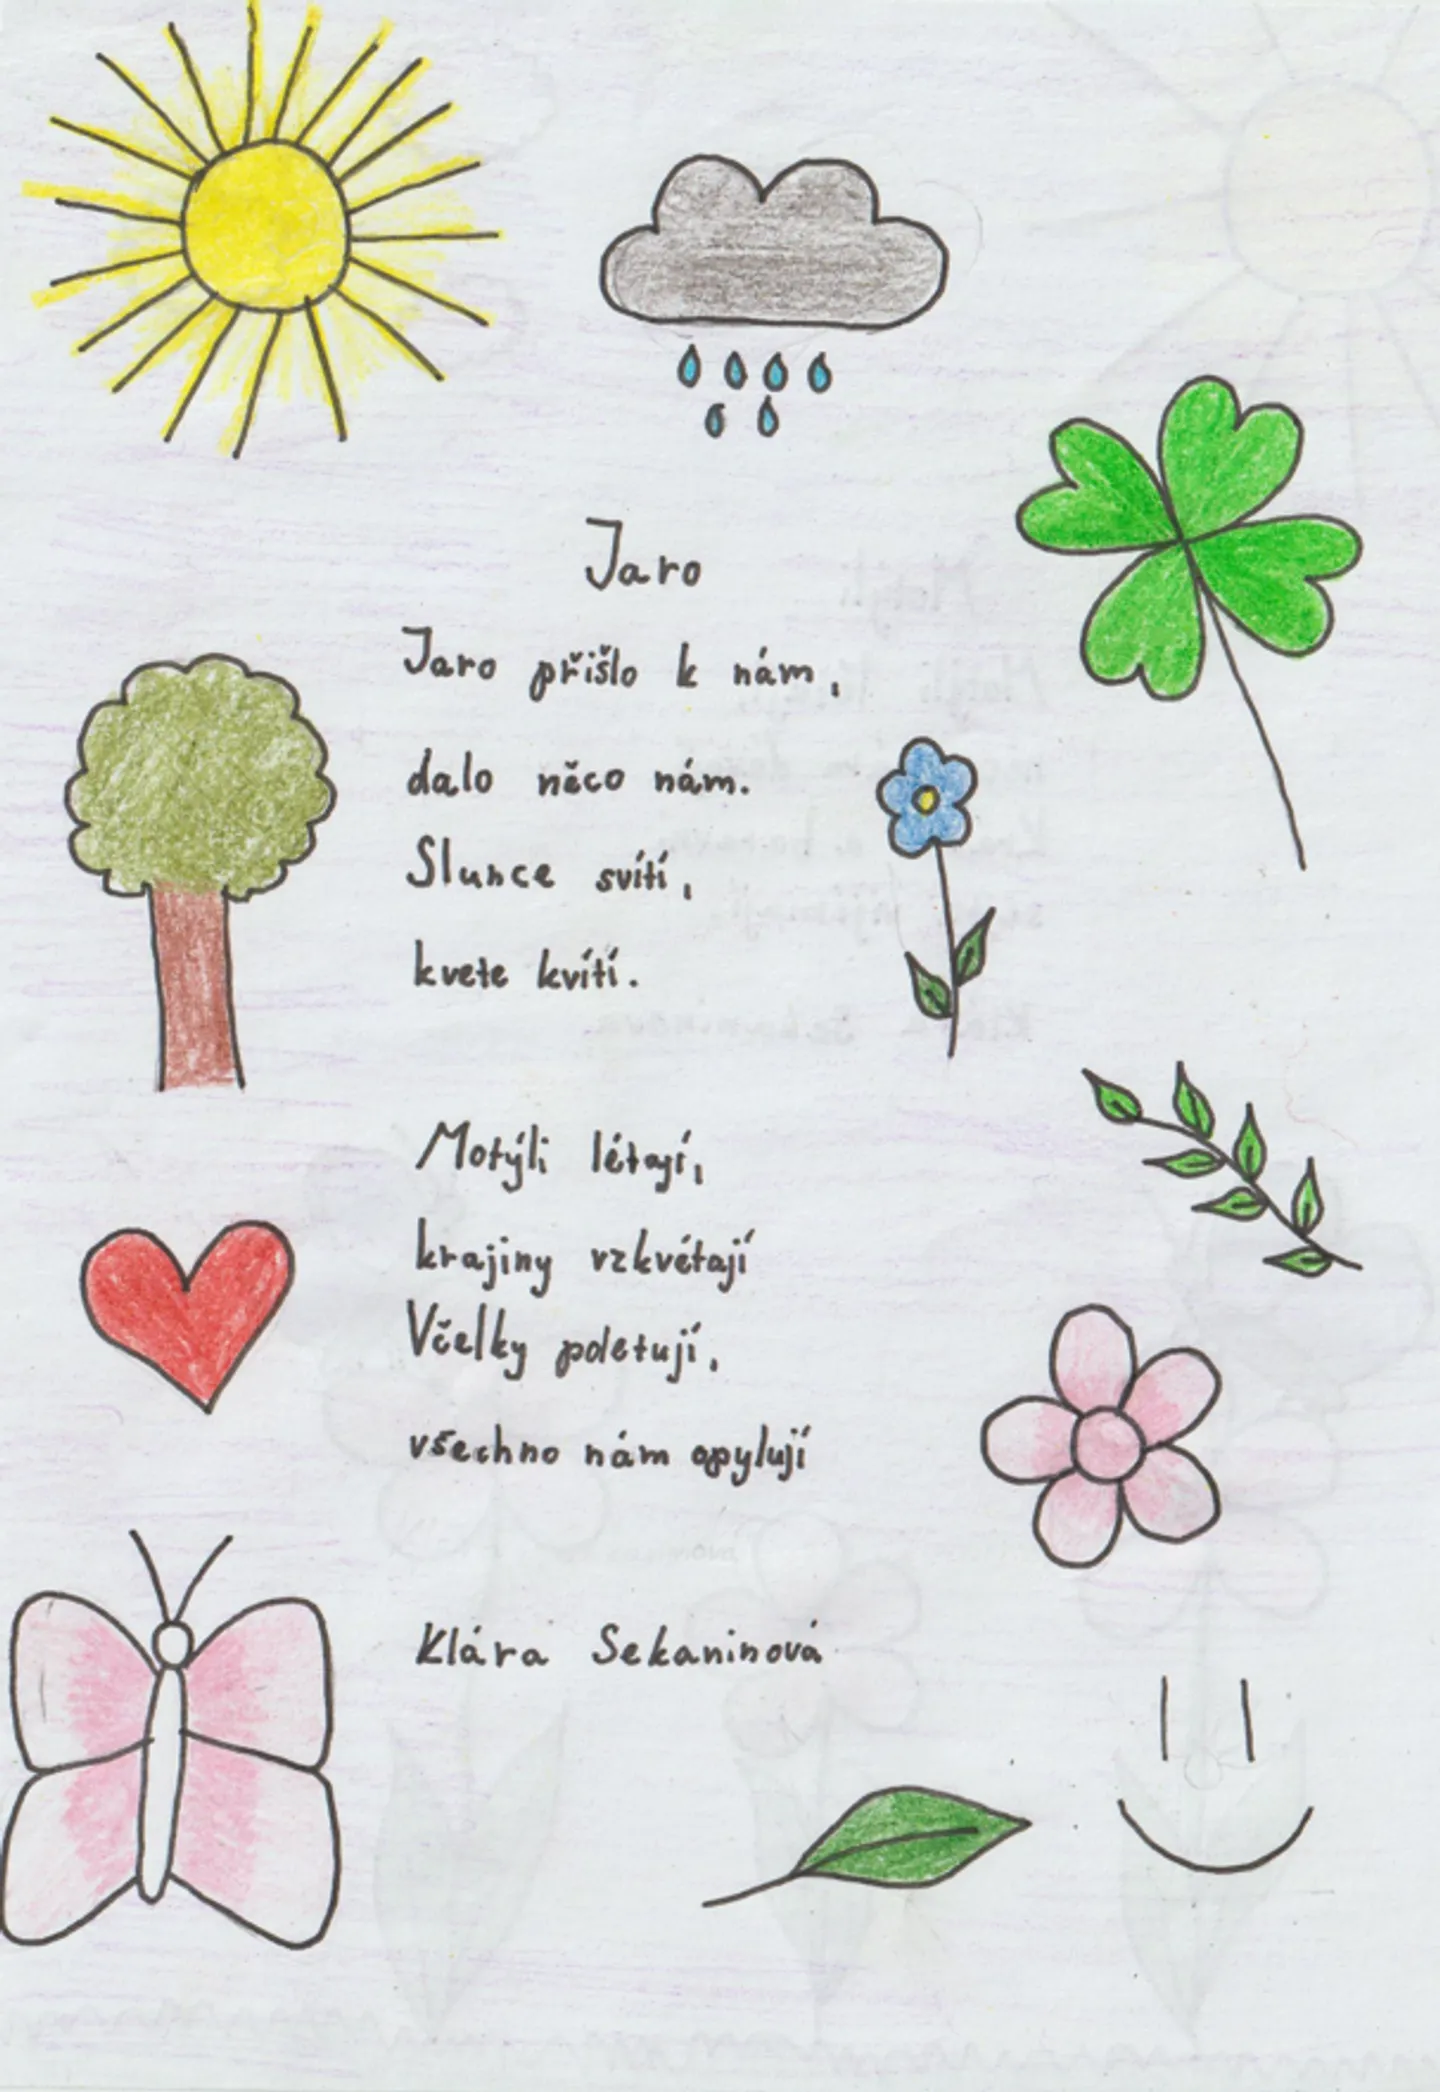 Jaro
Jaro přišlo k nám,
dalo něco nám.
Slunce svítí,
kvete kvítí.
Motýli létají,
krajiny vzkvétají
Včelky poletují,
všechno nám opylují
Klára Sekaninová